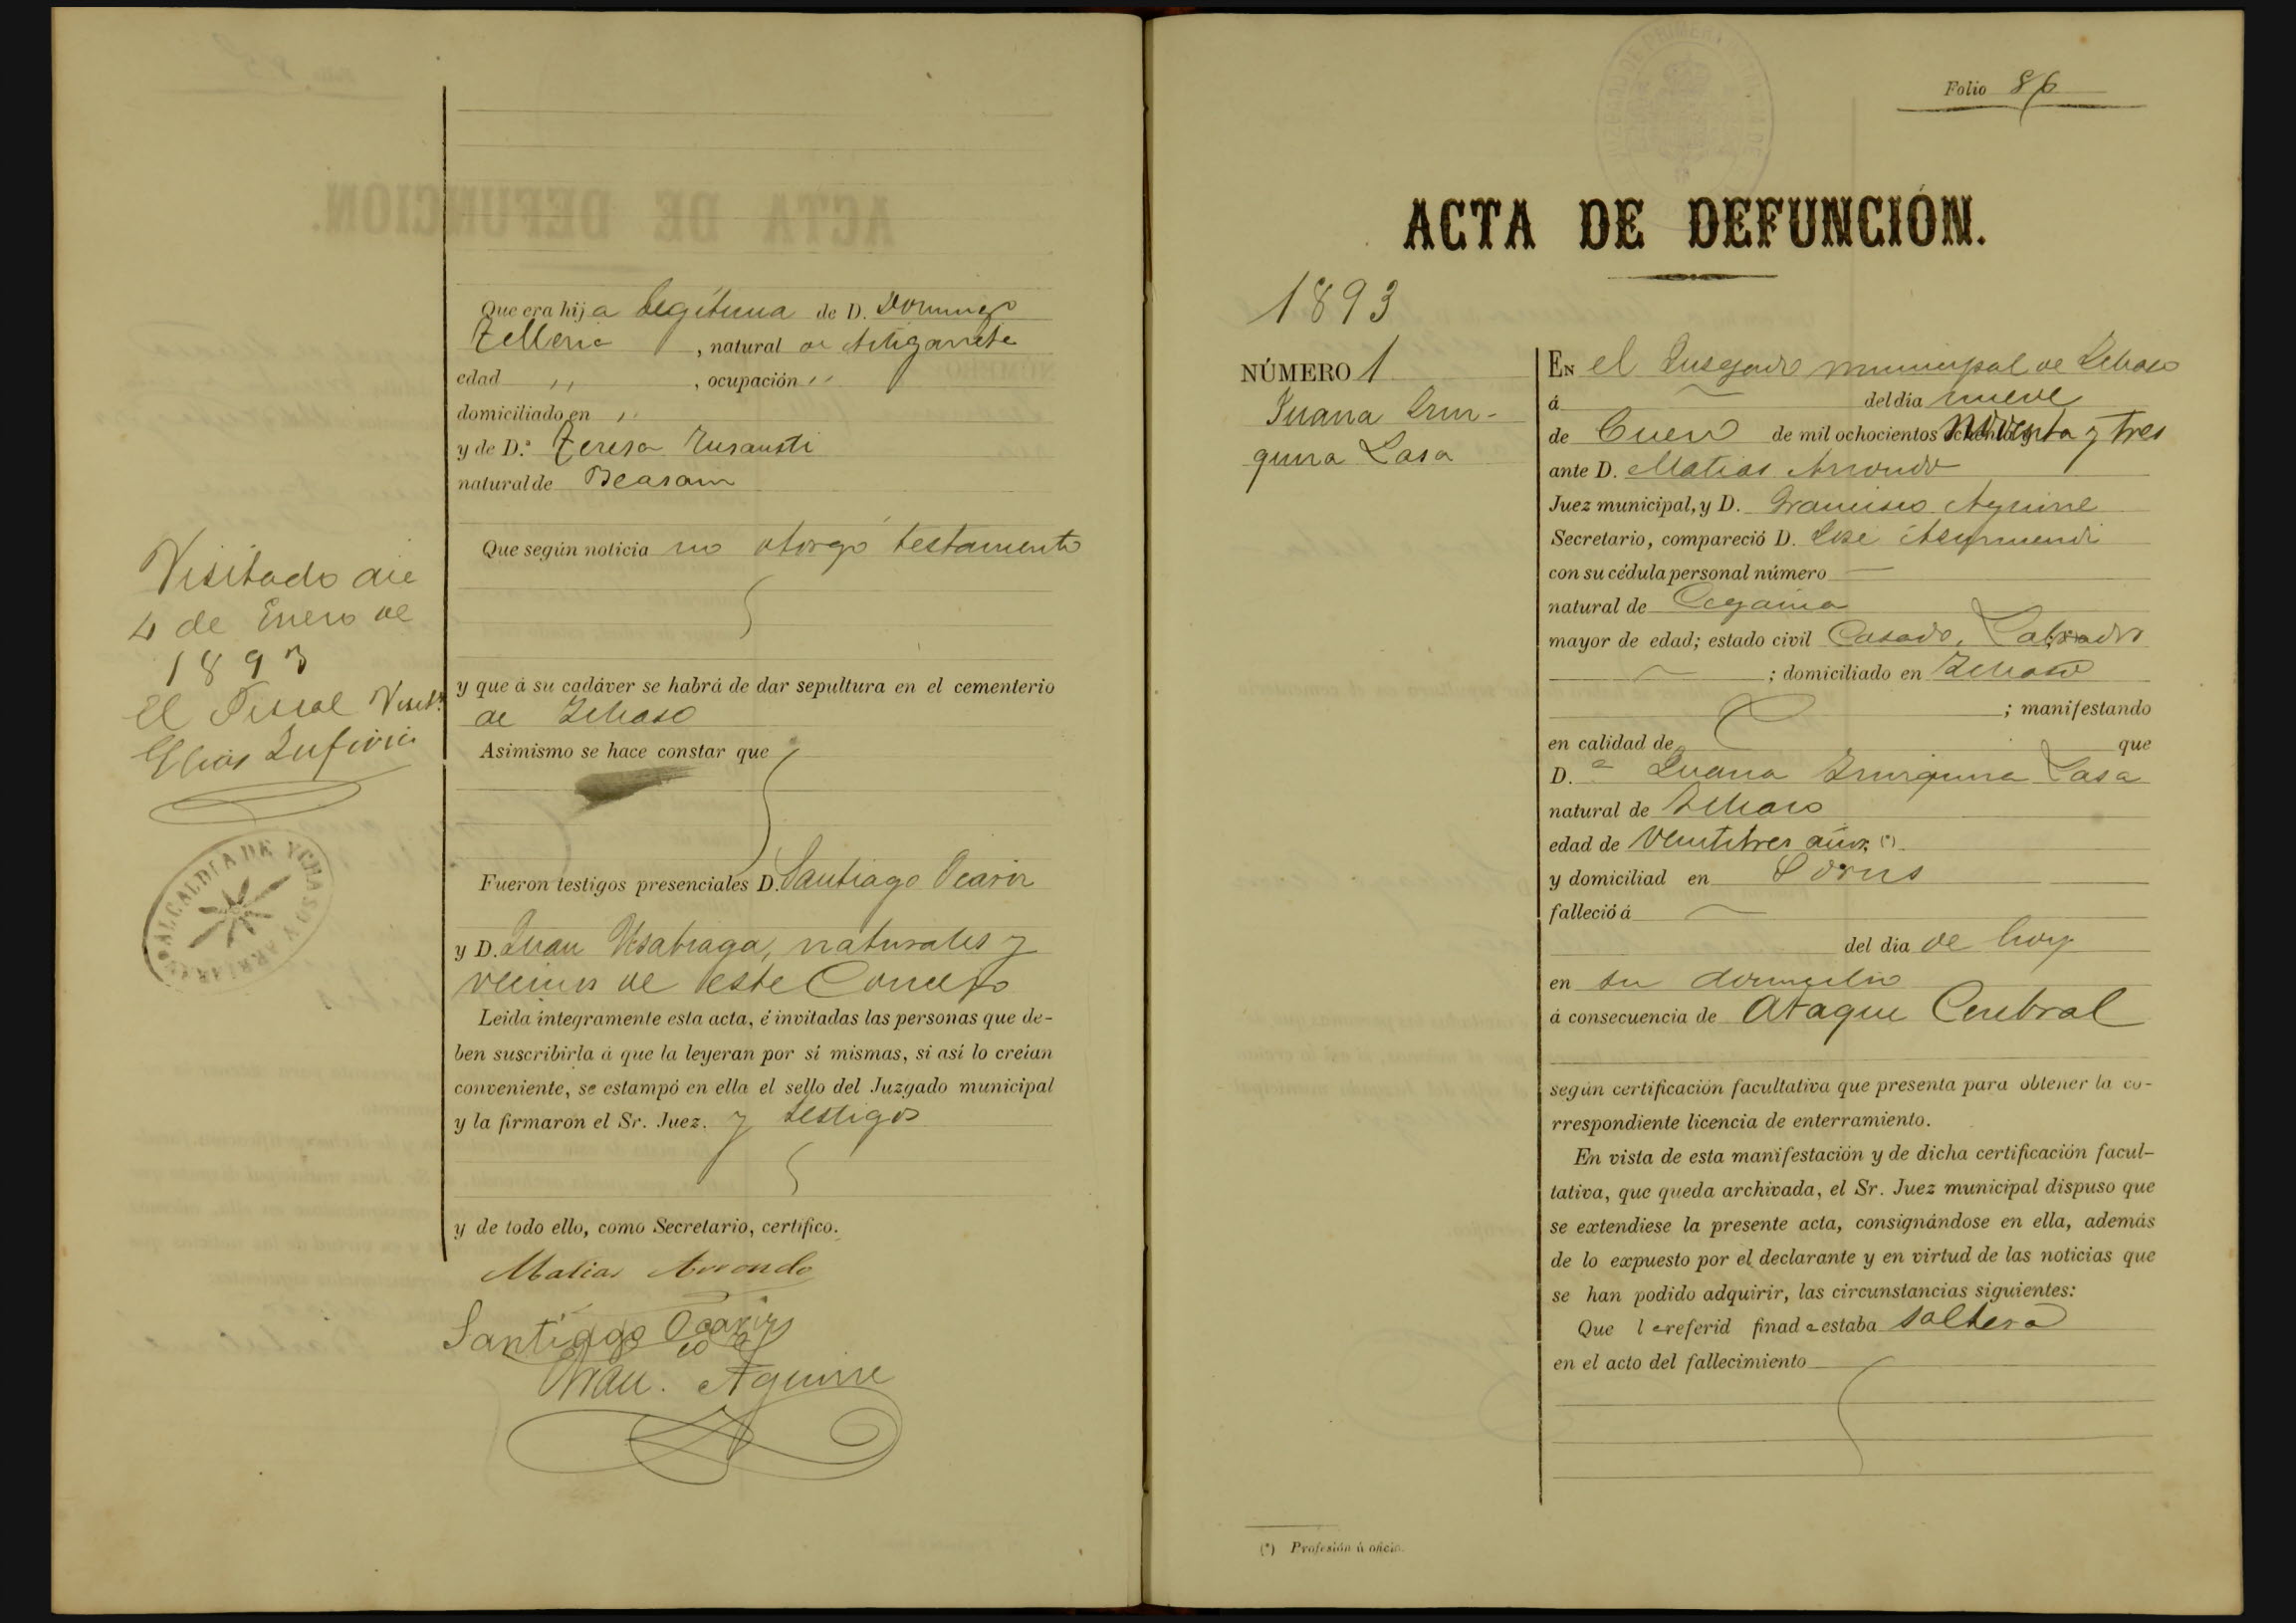 Que era hija legítima de D. Domingo
Telleria, natural de Atigarreta
edad ,, , ocupación ,,
domiciliado en ,,
y de D.ª Teresa
natural de Beasain
Que según noticia no otorgó testamento
Visitado die
4 de Enero de
1893
El Fiscal Visit.
Elias
y que á su cadáver se habrá de dar sepultura en el cementerio
de Ichaso
Asimismo se hace constar que
ALCALDIA DE YCHASO Y ARRIARAN
Fueron testigos presenciales D. Santiago Ocariz
y D. Juan, naturales y
vecinos de este Concejo
Leida íntegramente esta acta, é invitadas las personas que de-
ben suscribirla á que la leyeran por sí mismas, si así lo creían
conveniente, se estampó en ella el sello del Juzgado municipal
y la firmaron el Sr. Juez. y testigos
y de todo ello, como Secretario, certifico.
Matias Arrondo
Santiago Ocariz
Fran. Aguirre
Folio 86
ACTA DE DEFUNCIÓN.
1893
NÚMERO 1
Juana Irur-
quina Lasa
EN el Jusgado municipal de Ichaso
á del día nueve
de Enero de mil ochocientos noventa y tres
ante D. Matias Arrondo
Juez municipal, y D. Francisco Aguirre
Secretario, compareció D. José
con su cédula personal número
natural de Cegama
mayor de edad; estado civil Casado, Labrador
; domiciliado en Ichaso
; manifestando
en calidad de que
D.ª Juana Irurquina Lasa
natural de Ichaso
edad de veintitres años, (*)
y domiciliad en
falleció á
del dia de hoy
en su domicilio
á consecuencia de Ataque Cerebral
según certificación facultativa que presenta para obtener la co-
rrespondiente licencia de enterramiento.
En vista de esta manifestación y de dicha certificación facul-
tativa, que queda archivada, el Sr. Juez municipal dispuso que
se extendiese la presente acta, consignándose en ella, además
de lo expuesto por el declarante y en virtud de las noticias que
se han podido adquirir, las circunstancias siguientes:
Que l a referid finad a estaba soltera
en el acto del fallecimiento
(*) Profesión ú oficio.